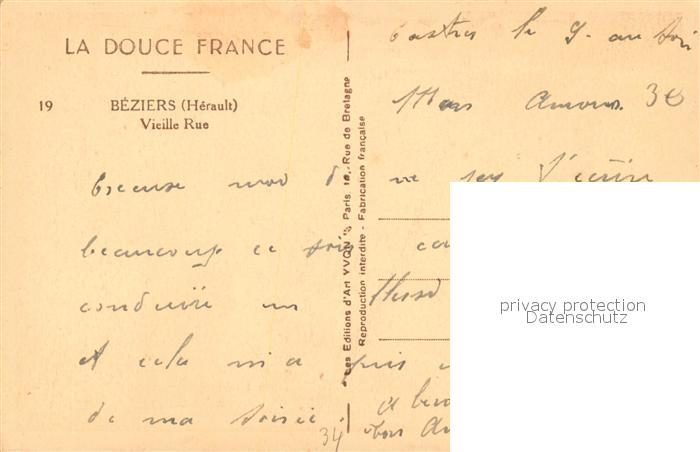 LA DOUCE FRANCE
19 BÉZIERS (Hérault)
Vieille Rue
Les Editions d'Art YVON, Paris, Rue de Bretagne
Reproduction interdite - Fabrication française
Castres le 9 au soir
Mon Amour. 30
Excuse moi de ne pas t'écrire
beaucoup ce soir
conduire un
Et cela m'a pris
de ma soirée
34
privacy protection
Datenschutz